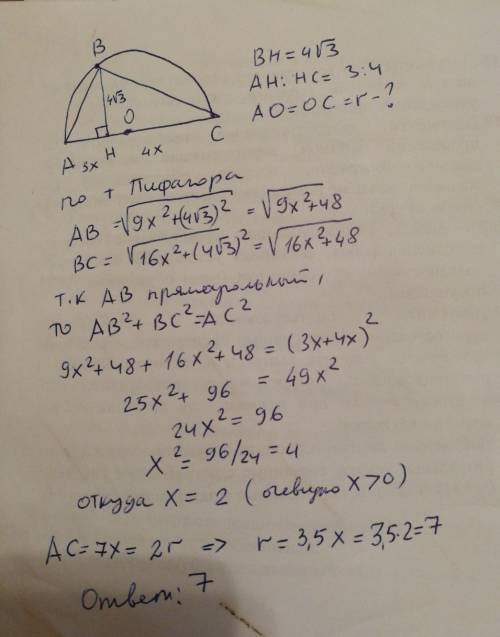 B
4√3
O
A 3x H 4x C
BH = 4√3
AH : HC = 3:4
AO = OC = r - ?
по т Пифагора
AB = √(9x² + (4√3)²) = √(9x² + 48)
BC = √(16x² + (4√3)²) = √(16x² + 48)
т.к AB прямоугольный,
то AB² + BC² = AC²
9x² + 48 + 16x² + 48 = (3x + 4x)²
25x² + 96 = 49x²
24x² = 96
x² = 96/24 = 4
откуда x = 2 (очевидно x > 0)
AC = 7x = 2r => r = 3,5x = 3,5·2 = 7
Ответ: 7